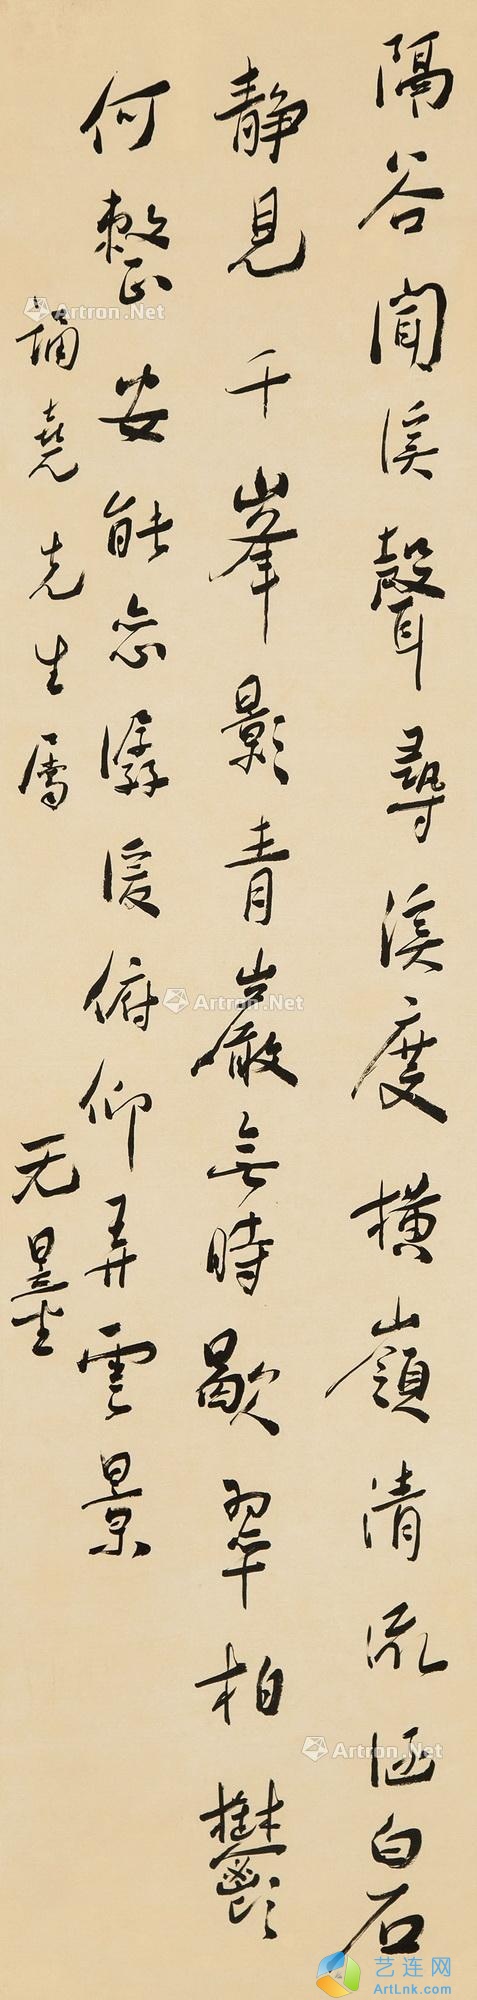 隔谷聞溪聲尋溪度橫嶺清流涵白石
靜見千峯影青巖無時歇翠柏鬱
何整安能戀潺湲俯仰弄雲景
誦堯先生屬
无量
Artron.Net
Artron.Net
Artron.Net
Artron.Net
Artron.Net
艺连网
ArtLnk.com